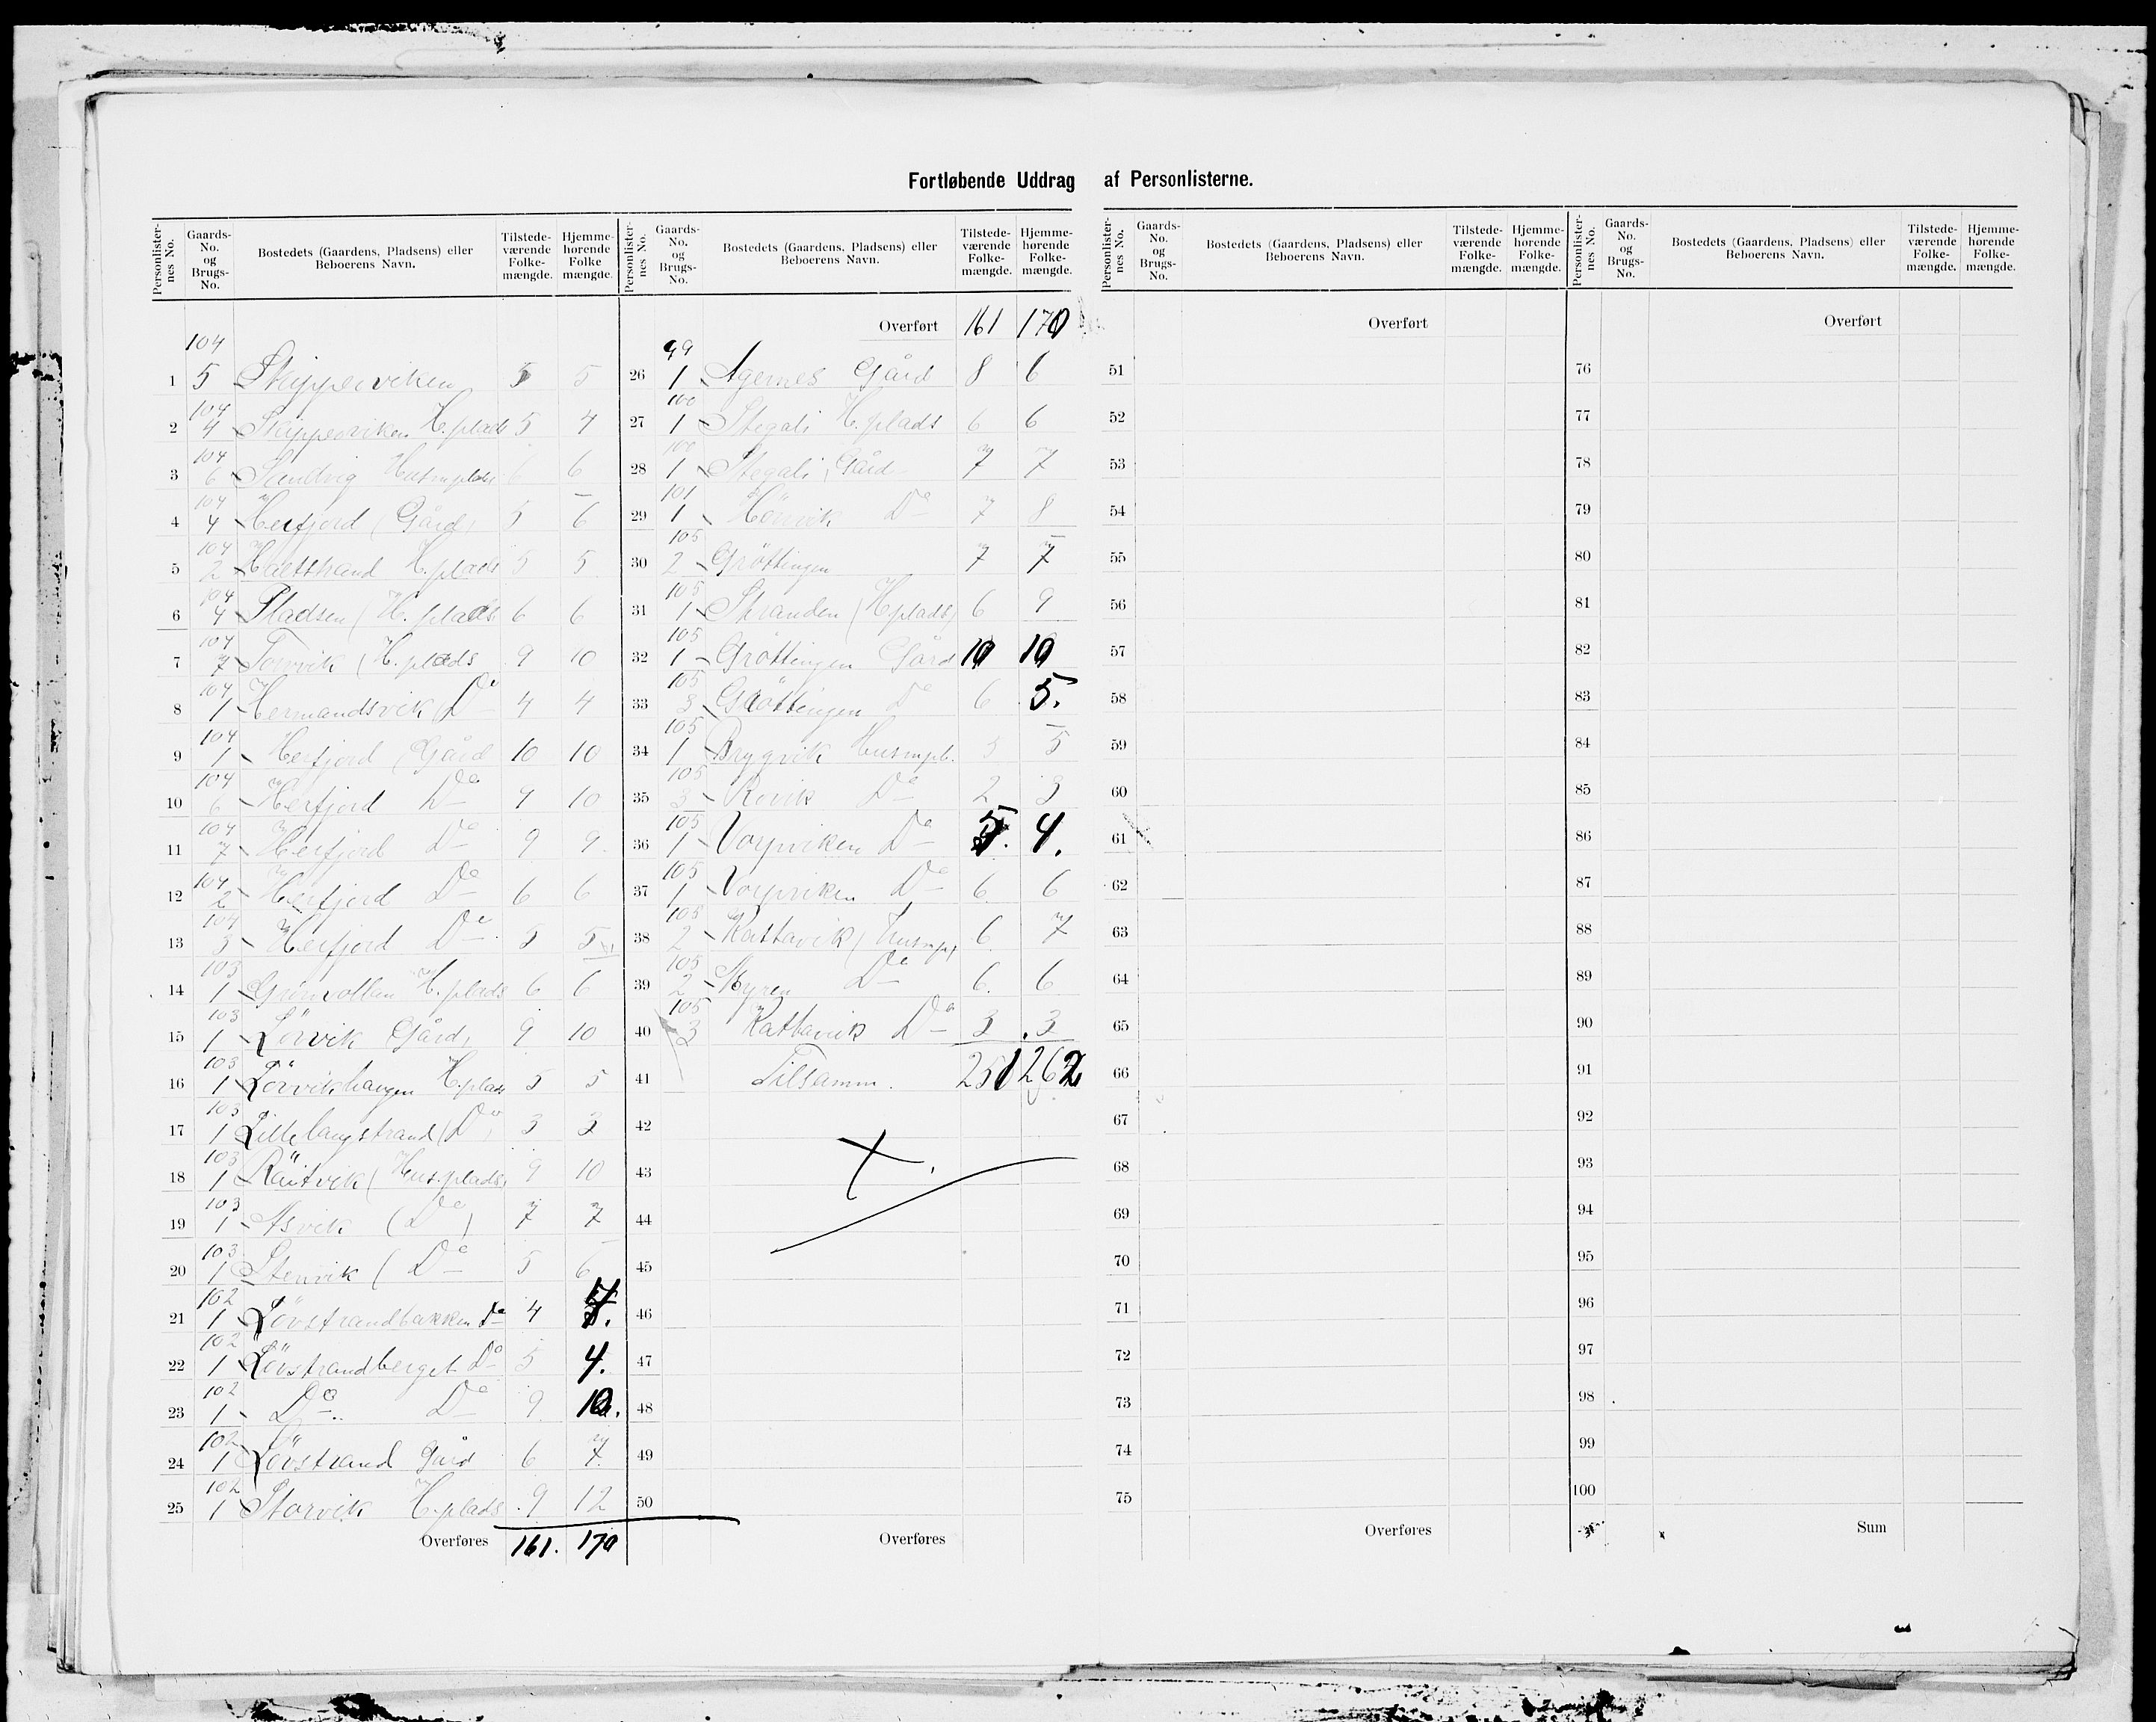 Fortløbende Uddrag af Personlisterne.
Personlister-nes No. Gaards-No. og Brugs-No. Bostedets (Gaardens, Pladsens) eller Beboerens Navn. Tilstede-værende Folke-mængde. Hjemme-hørende Folke mængde.
104
1 5 Skipperviken 5 5
104
2 4 Skipperviken H.plads 5 4
104
3 6 Sandvig Husmplads 6 6
104
4 4 Herfjord (Gård) 5 6
104
5 2 H.plads 5 5
104
6 4 Pladsen (H. plads) 6 6
104
7 7 Torvik (H. plads 9 10
104
8 1 Hermandsvik (Do 4 4
104
9 1 Herfjord (Gård 10 10
104
10 6 Herfjord Do 9 10
104
11 7 Herfjord Do 9 9
104
12 2 Herfjord Do 6 6
104
13 3 Herfjord Do 5 5
103
14 1 Grönvollen H. plads 6 6
103
15 1 Lörvik Gård, 9 10
103
16 1 Lörvikhaugen H.plads 5 5
103
17 1 Lille langstrand (Do) 3 3
103
18 1 Räutvik (Hus.plads) 9 10
103
19 1 Asvik (Do) 7 7
103
20 1 Stenvik (Do 5 6
102
21 1 Lövstrandbakken Do 4
102
22 1 Lövstrandberget Do 5 4.
102
23 1 Do Do 9 10.
102
24 1 Lövstrand Gård 6 7
102
25 1 Storvik H.plads 9 12
Overføres 161. 170
Personlister-nes No. Gaards-No. og Brugs-No. Bostedets (Gaardens, Pladsens) eller Beboerens Navn. Tilstede-værende Folke-mængde. Hjemme-hørende Folke-mængde.
Overført 161 170
99
26 1 Agernes Gård 8 6
100
27 1 Stegali H. plads 6 6
100
28 1 Stegali, Gård 7 7
101
29 1 Hönvik Do 7 8
105
30 2 Gröttingen 7 7
105
31 1 Stranden (H.plads) 6 9
105
32 1 Gröttingen Gård 10 10
105
33 3 Gröttingen Do 6 5.
105
34 1 Brygvik Husmpl. 5 5
105
35 3 Rovik Do 2 3
105
36 1 Vorpviken Do 5. 4.
105
37 1 Vorpviken Do 6 6
105
38 2 Kattavik (Husmp) 6 7
105
39 2 Myren Do 6. 6
105
40 3 Kattavik Do 3 3
41 Tilsamm. 251 262
42
43
44
45
46
47
48
49
50
Overføres
Personlister-nes No. Gaards-No. og Brugs-No. Bostedets (Gaardens, Pladsens) eller Beboerens Navn. Tilstede-værende Folke-mængde. Hjemme-hørende Folke-mængde.
Overført
51
52
53
54
55
56
57
58
59
60
61
62
63
64
65
66
67
68
69
70
71
72
73
74
75
Overføres
Personlister-nes No. Gaards-No. og Brugs-No. Bostedets (Gaardens, Pladsens) eller Beboerens Navn. Tilstede-værende Folke-mængde. Hjemme-hørende Folke-mængde.
Overført
76
77
78
79
80
81
82
83
84
85
86
87
88
89
90
91
92
93
94
95
96
97
98
99
100
Sum